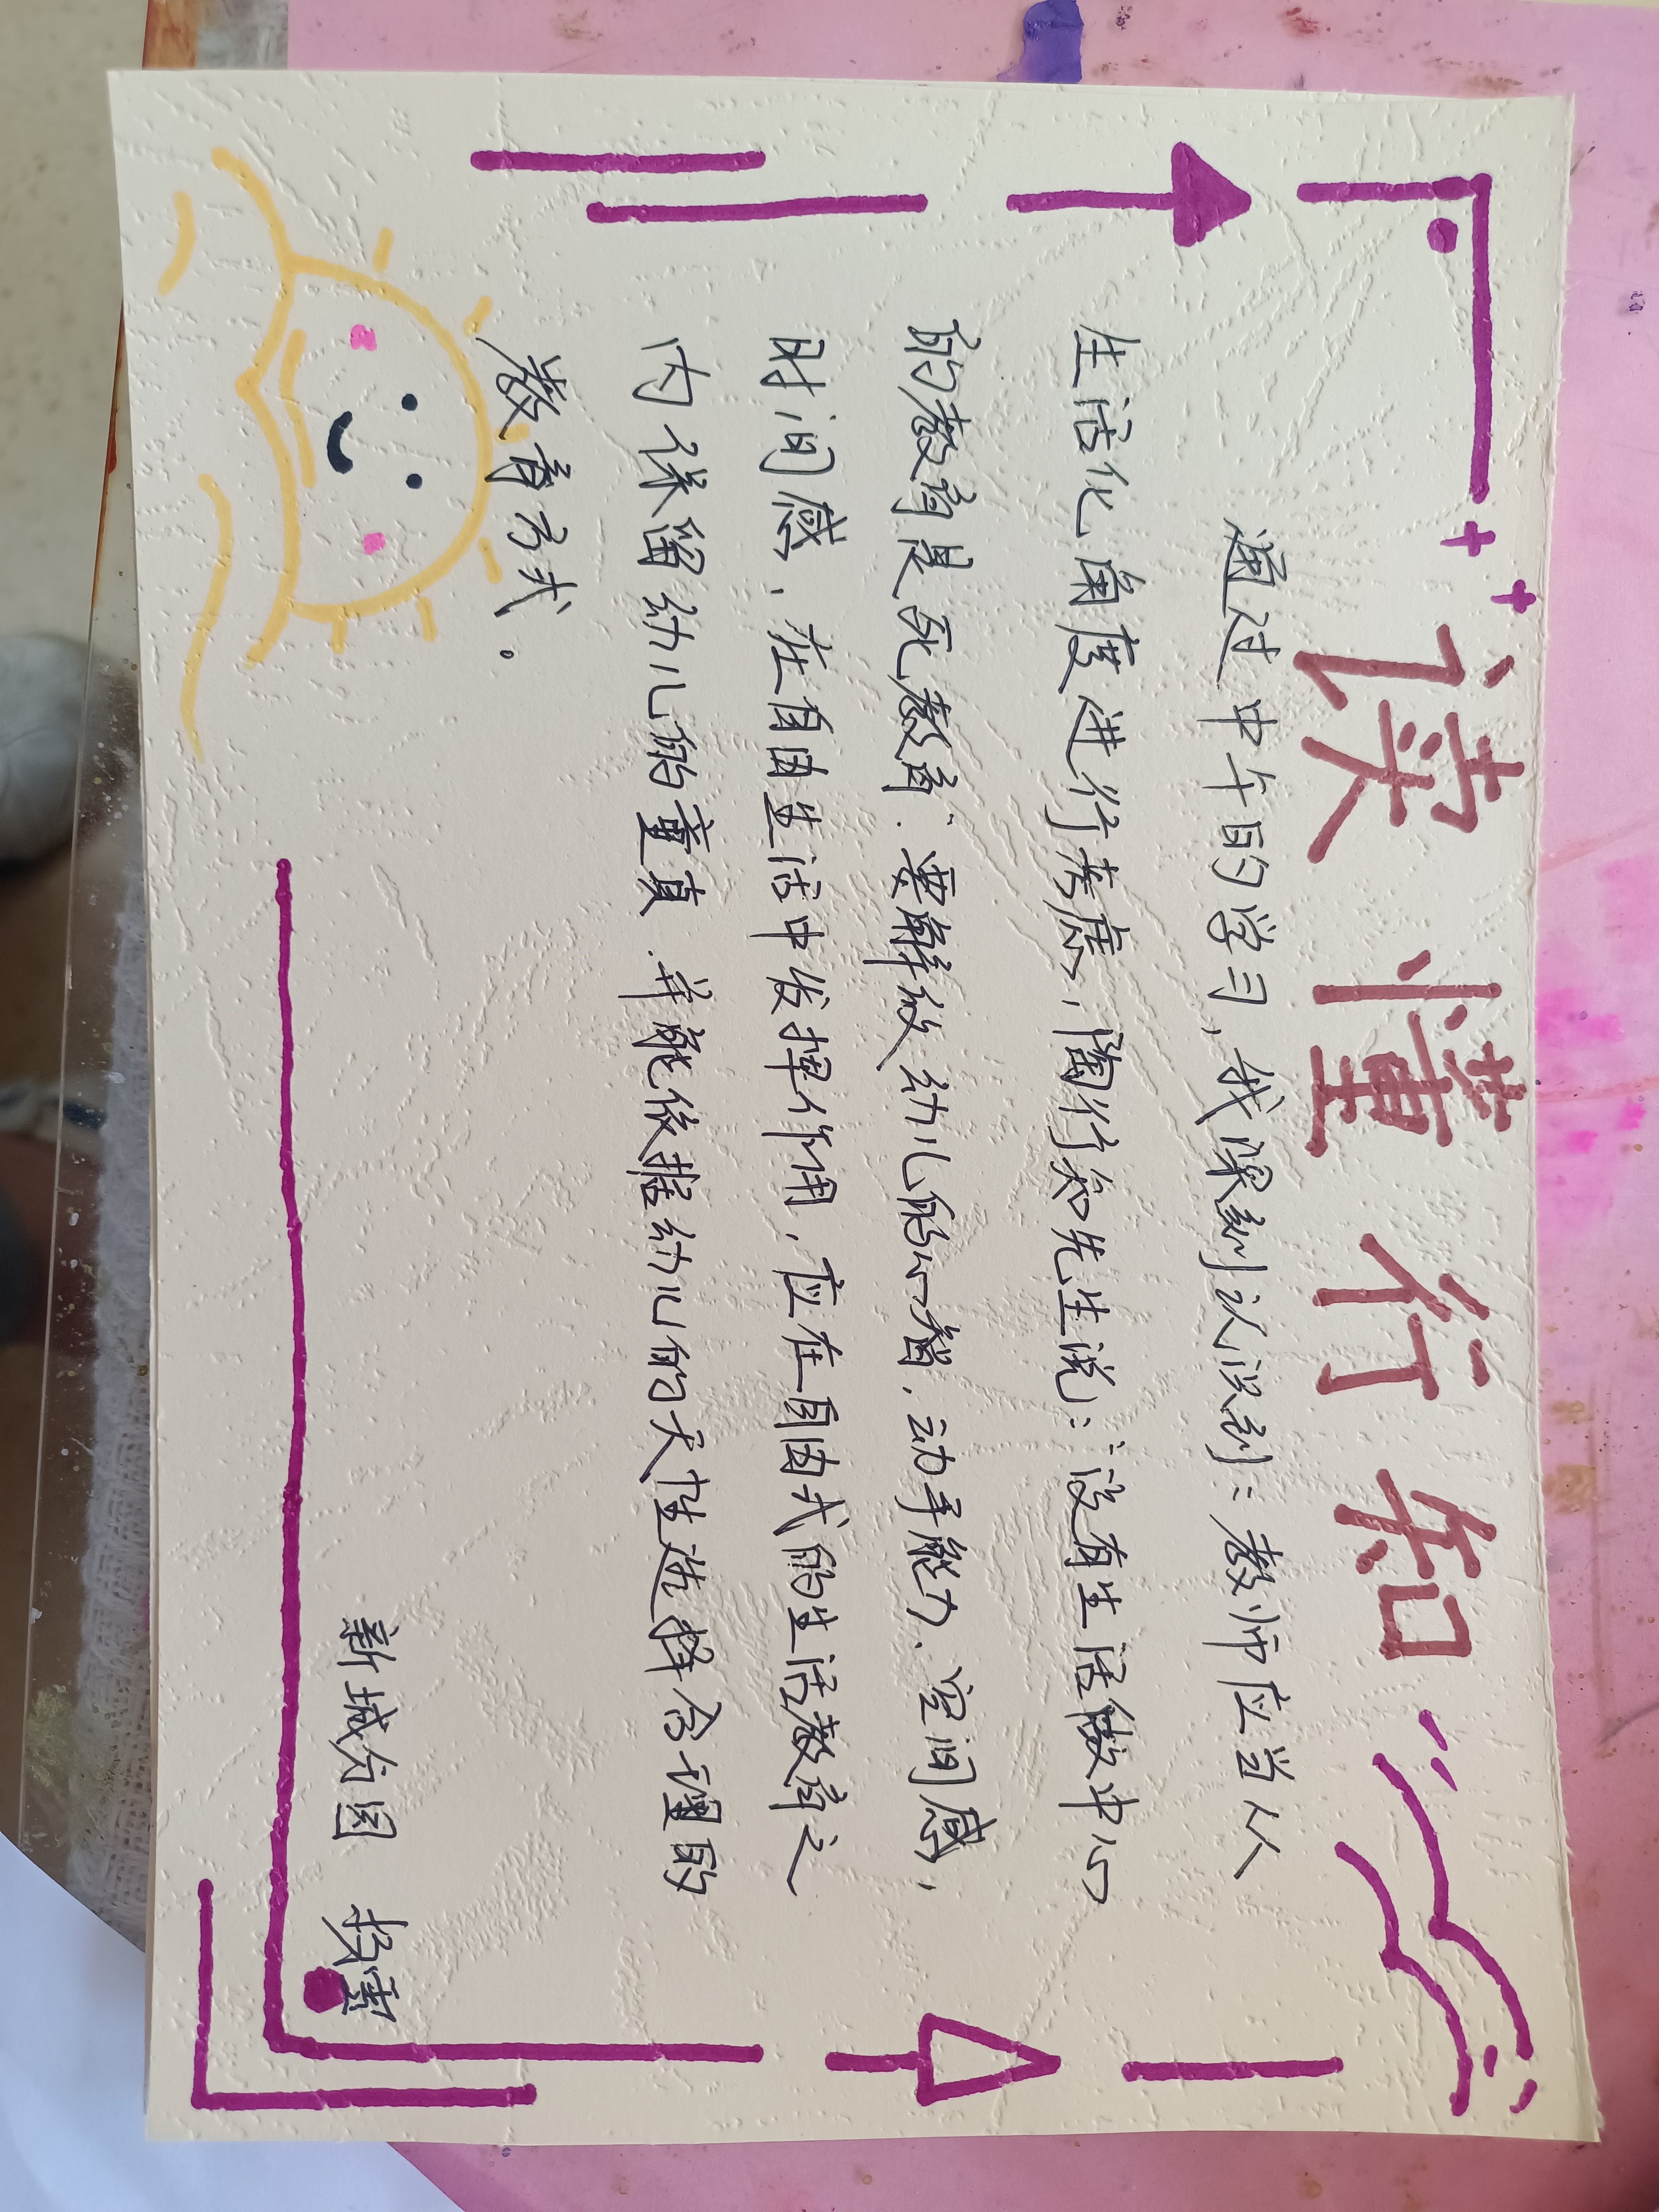 读懂行知
通过中午的学习，我深刻认识到：教师应当从
生活化角度进行考虑，陶行知先生说：“没有生活做中心
的教育是死教育”.要解放幼儿的心智，动手能力、空间感，
时间感，在自由生活中发挥作用，应在自由式的生活教育之
内保留幼儿的童真.并能依据幼儿的天性选择合理的
教育方式。
新城分园